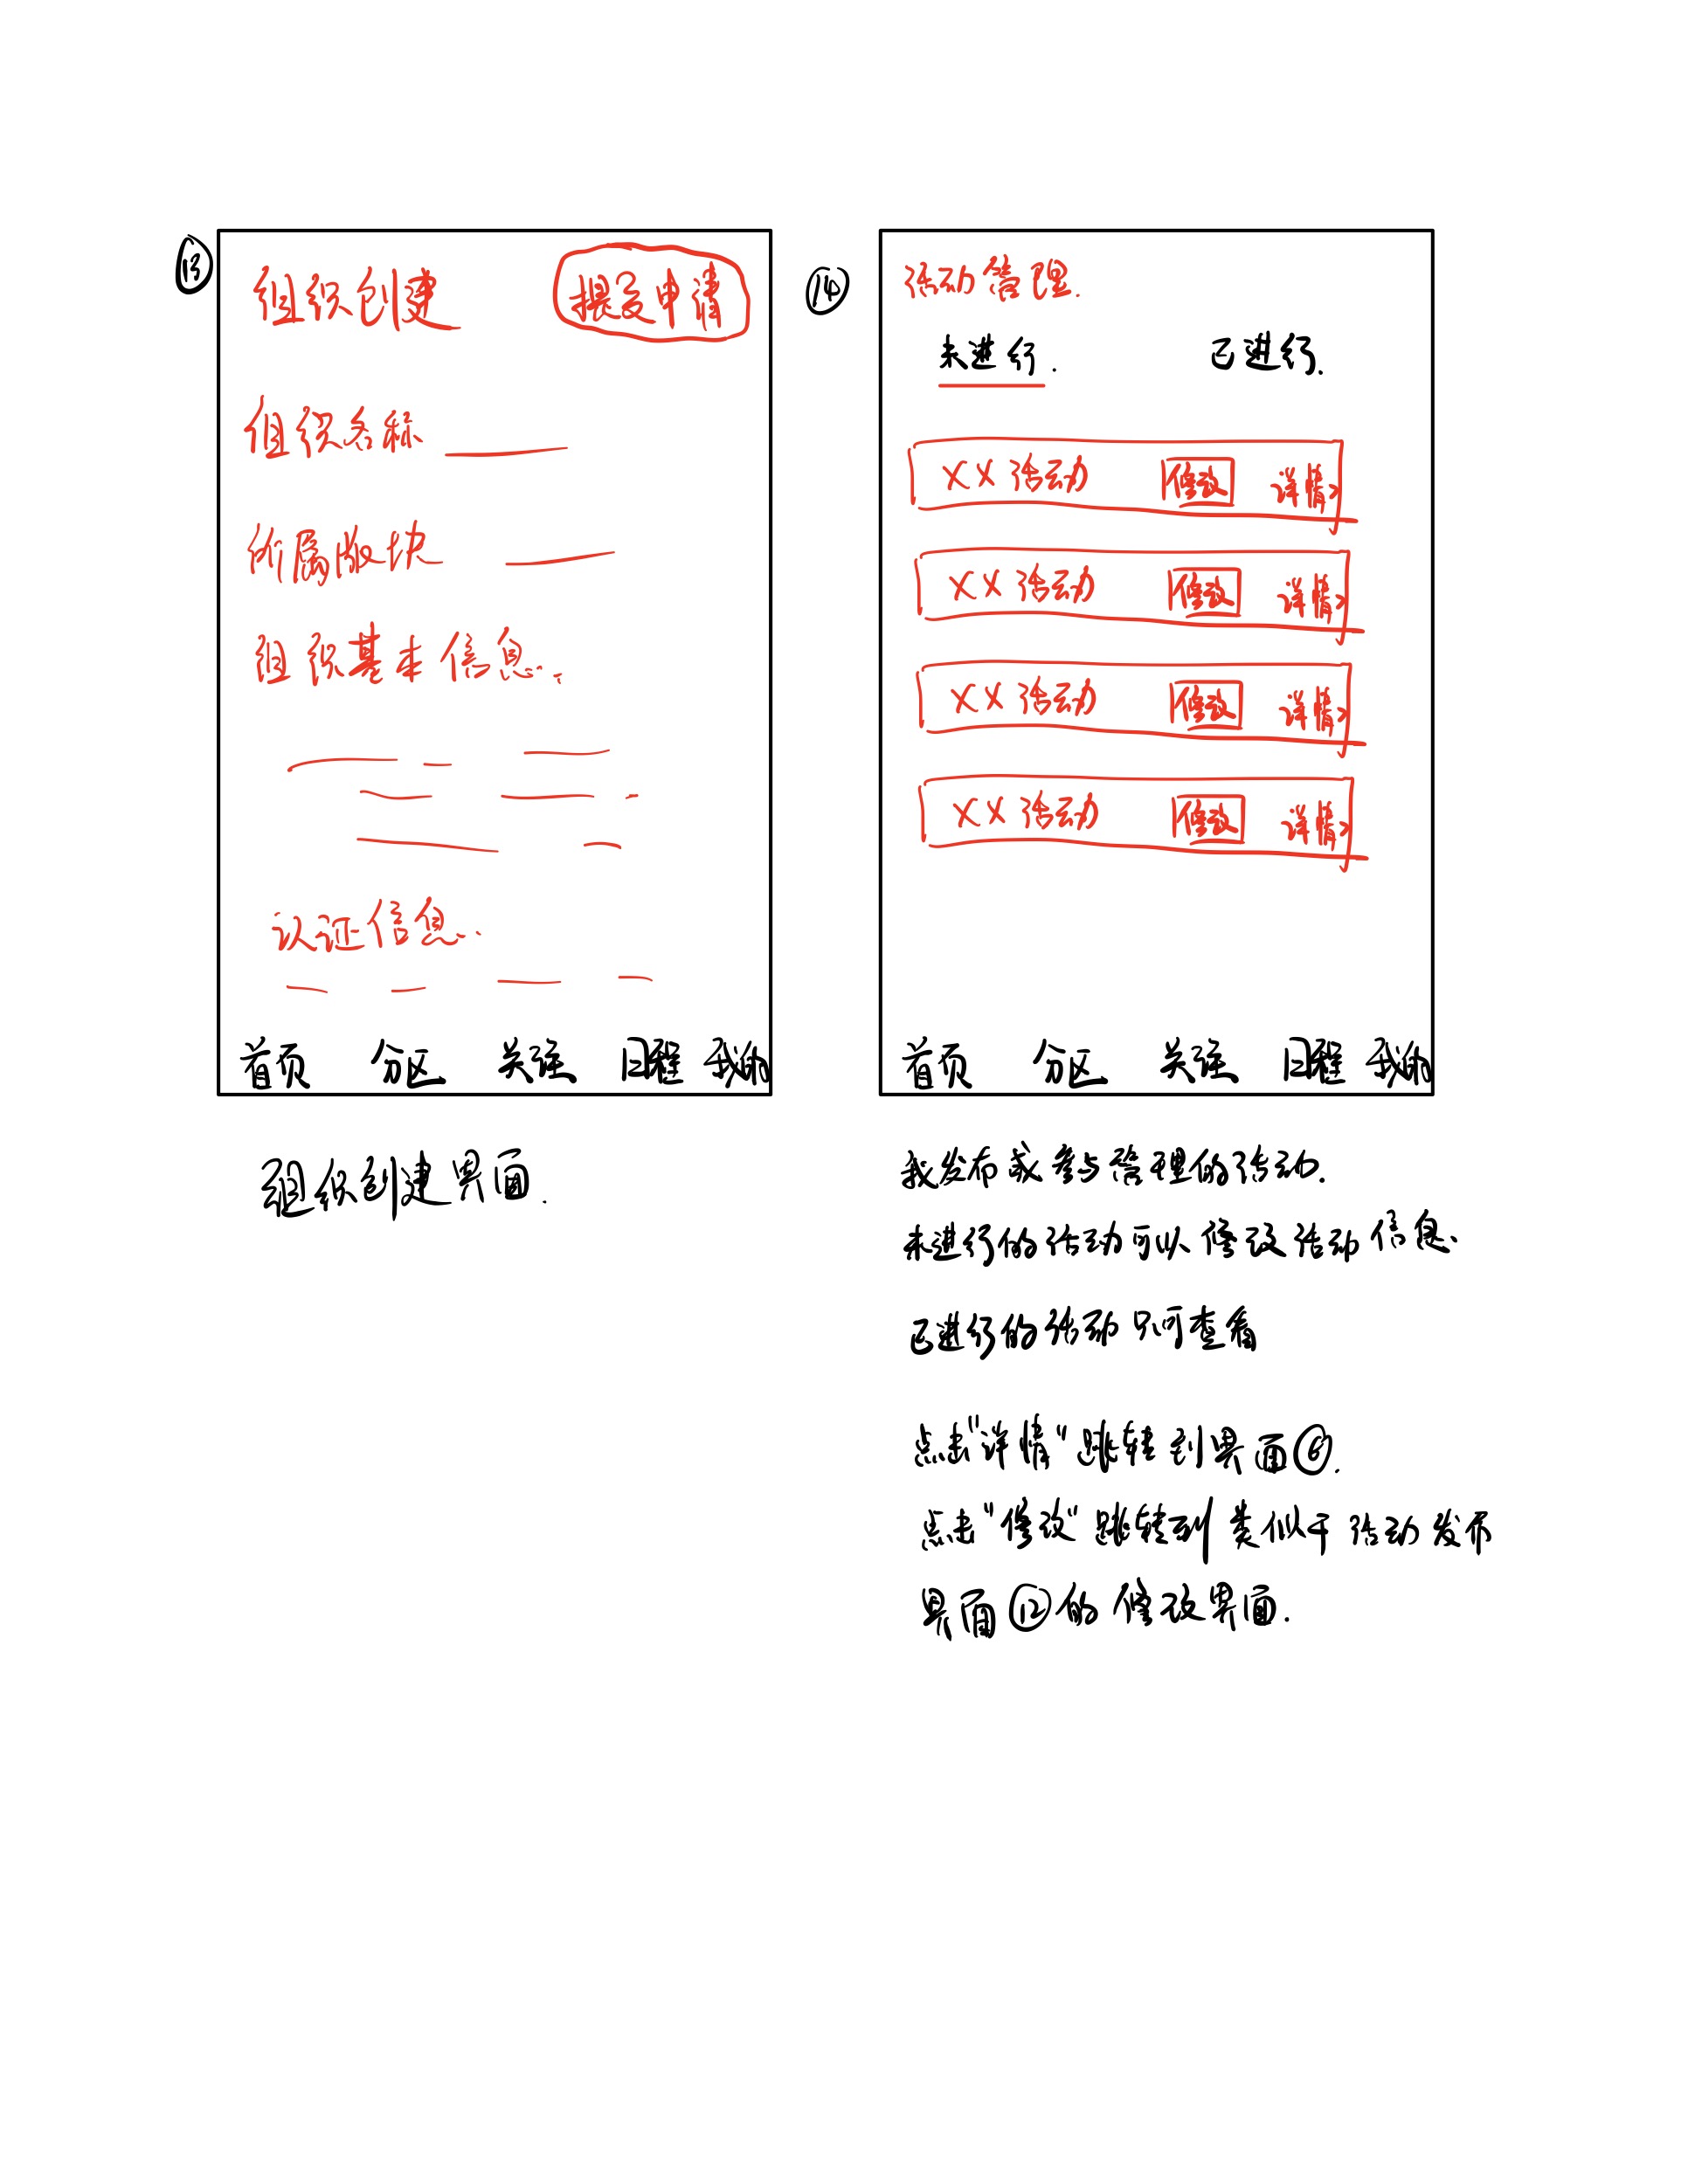 ⑬
组织创建 提交申请
组织名称
所属版块
组织基本信息..
认证信息..
首页 分区 关注 日程 我的
组织创建界面.
⑭
活动管理.
未进行. 已进行.
XX活动 修改 详情>
XX活动 修改 详情>
XX活动 修改 详情>
XX活动 修改 详情>
首页 分区 关注 日程 我的
我发布或参与管理的活动.
未进行的活动可以修改活动信息、
已进行的活动只可查看
点击"详情"跳转到界面⑥.
点击"修改"跳转到类似于活动发布
界面⑫的修改界面.